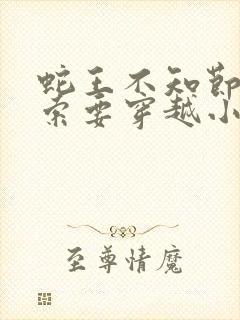 蛇王不知节
索要穿越小
至尊情魔